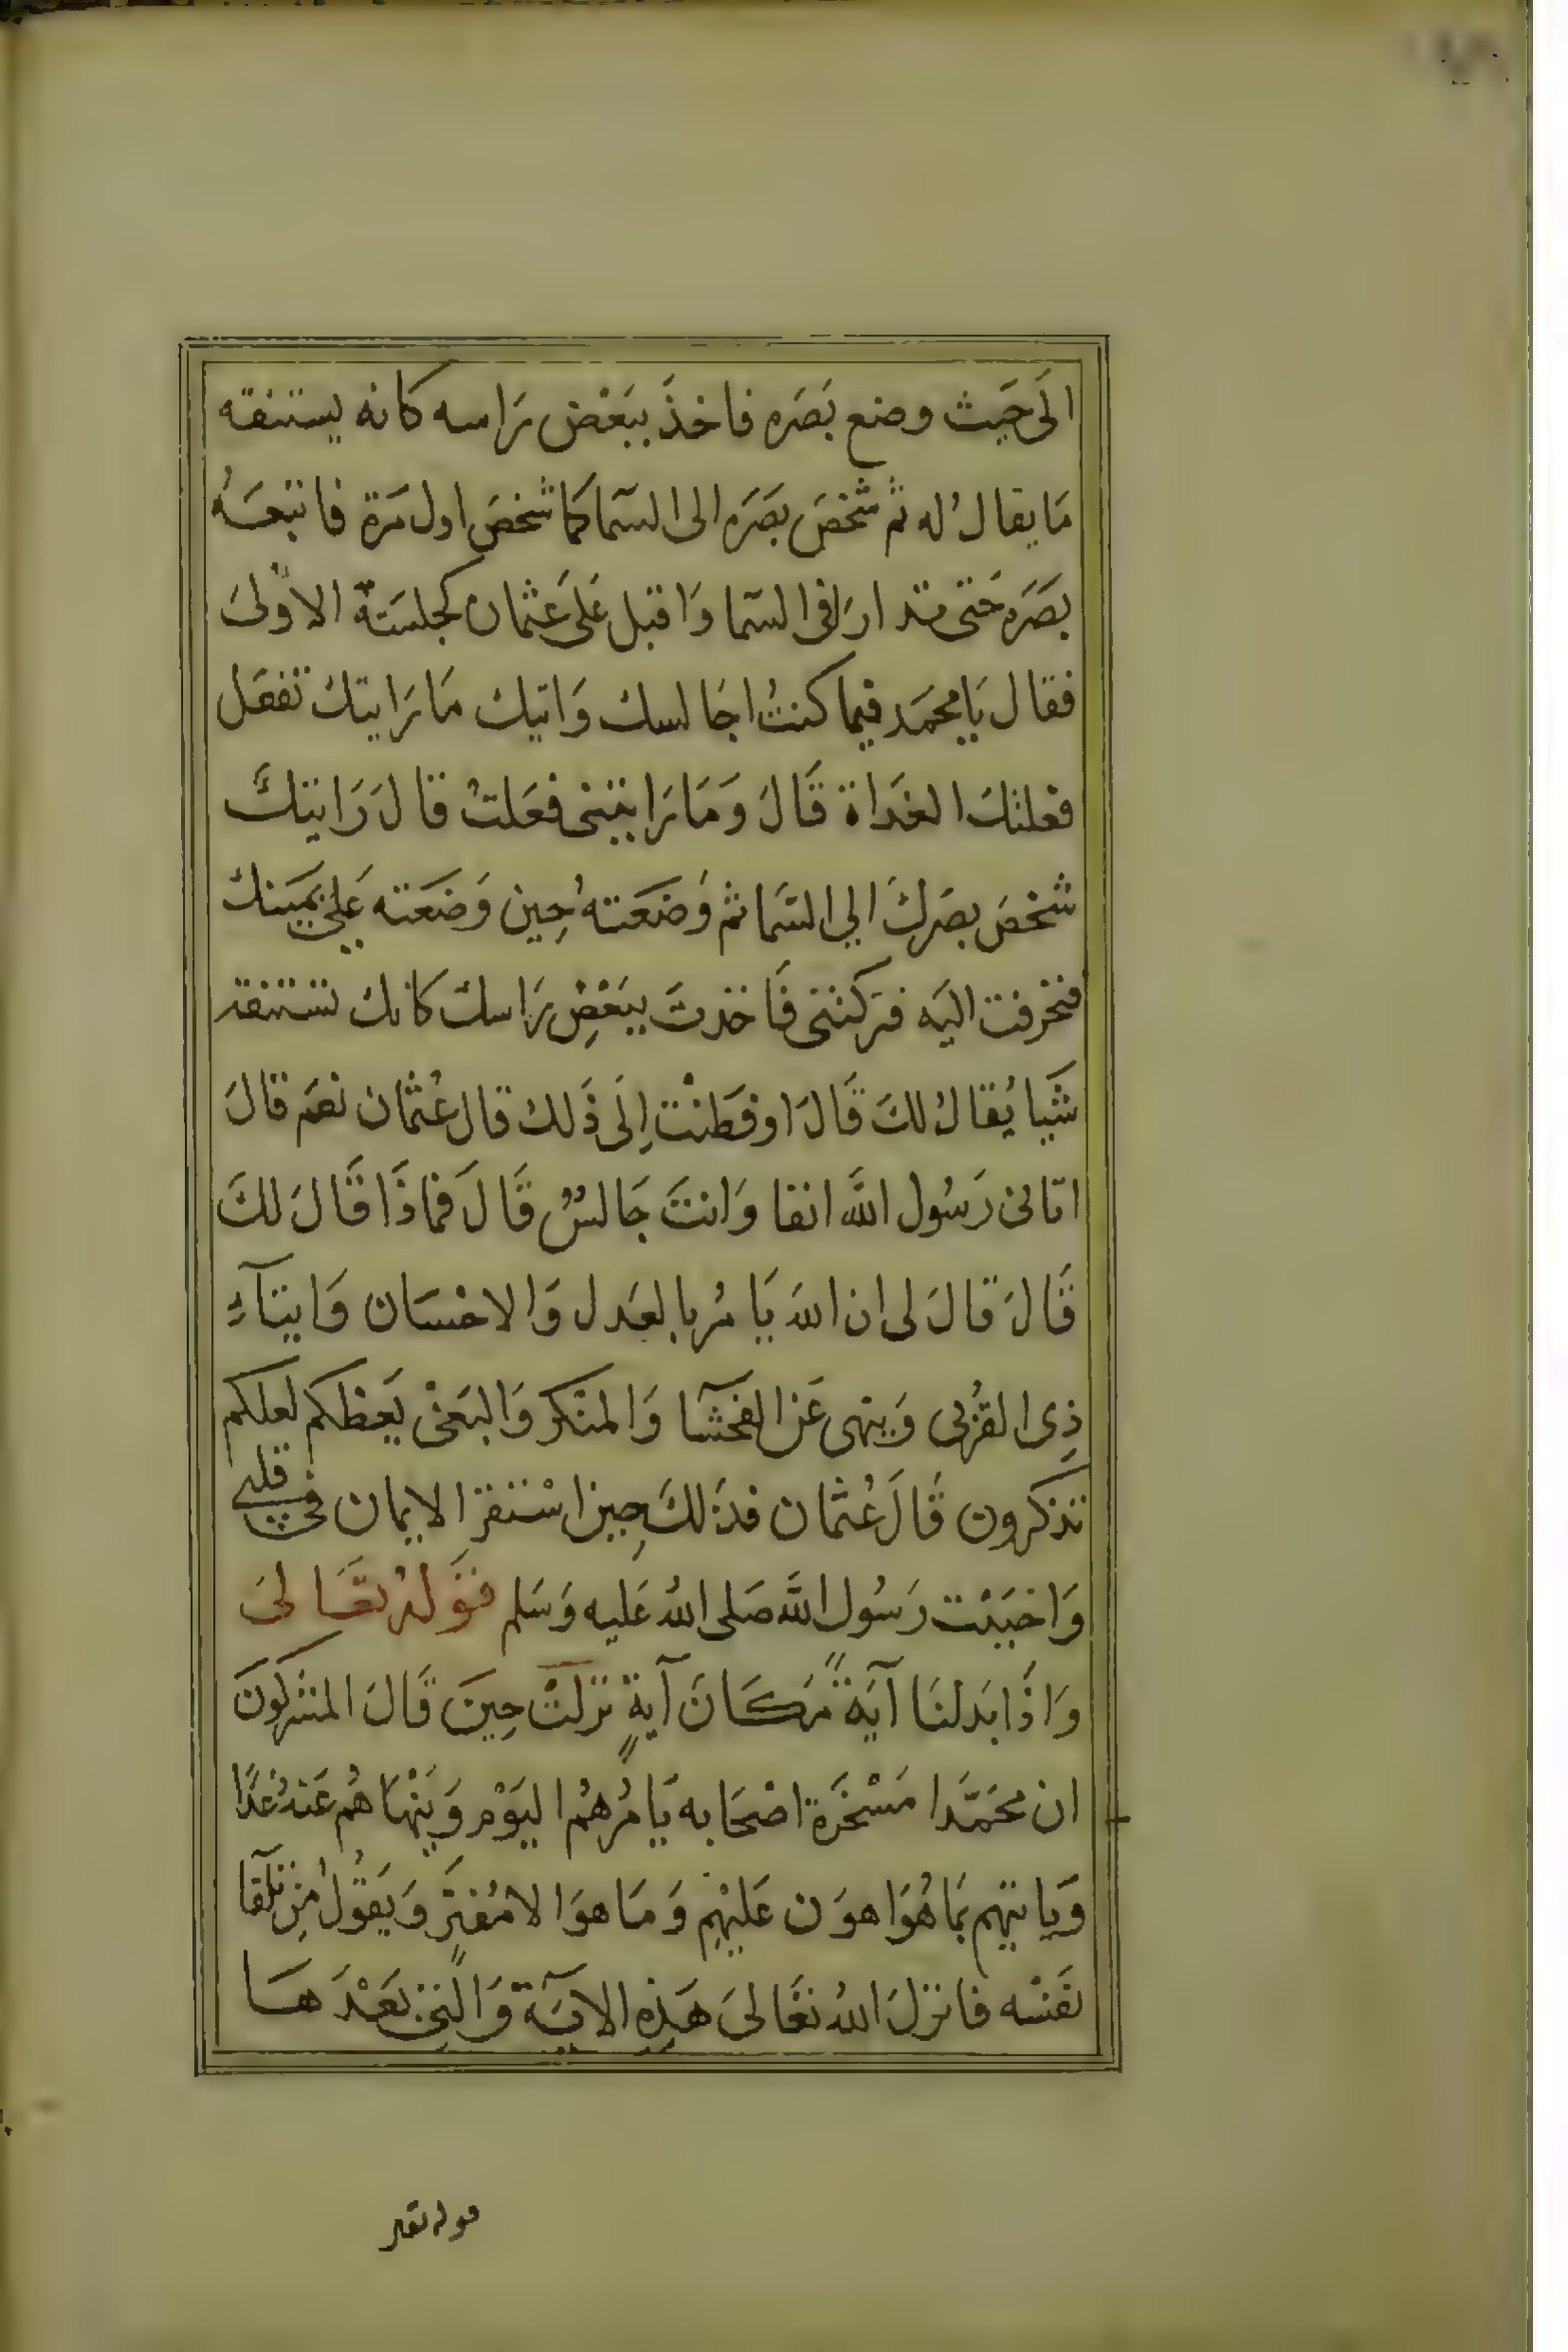 الَى حَيث وضع بَصَره فاخذَ بيَعْض رَاسه كانه يستنفقه
مَا يقال لُه ثم شَخصَ بصَرَه الى السَما كما شخصَ اول مَرة فاتبعَهُ
بصَرَه حَتى تدارَا فى السَما وَاقبل عَلى عَثمان كجلسَتهَ الاوَّلىَ
فقال يَا محمَد فيما كنتُ اجَالسك وَاتيك مَا رَايتك تفعَل
فعلتكَ الغدَاة قَالَ وَمَا رَايتنى فعَلتُ قالَ رَايتكَ
شخصَ بصَركَ الي السَما ثم وَضعَتهُ حِين وَضعَته عَلى يَمينك
فتحرفت اليَه فتركتنى فَاخذتَ بيَعْضِ رَاسك كانك تستنفقه
شَيا يُقالُ لكَ قَالَ اوفطنْت اِلَى ذَلك قال عُثمان نعَم قالَ
اتانى رَسُول اللَه انفا وَانتَ جَالسٌ قَالَ فماذَا قَالَ لكَ
قَالَ قالَ لى ان اللهَ يَامُر بالعَدل وَالاحْسَان وَايتآءِ
ذِى القُربى وَينهى عَن الفحشآ وَالمنْكر وَالبَغْى يَعظكم لعلكم
تذكرون قَالَ عُثمان فذَلكَ حِين اسْتقر الايمان فى قلبى
وَاحبَبْت رَسُول اللَه صَلى اللهُ عَليه وَسَلم قوَلهُ تعَالىَ
وَاذَا بَدلنَا آيَةً مَكَانَ آيةٍ نزلتْ حِينَ قَالَ المشركونَ
ان محَمَّدا مَسْخَرَة اصْحَابه يَامُرهُم اليَوْم وَيَنْهَاهُم عَنهُ غدًا
وَيَاتيهم بمَا هُوَا هوَن عَليْهِم وَمَا هوَ الا مُفترٍ وَيَقُولُ مِن تلْقا
نفَسْه فانزلَ اللهُ تعَالىَ هَذِه الايَة وَالتِى بَعْدَهَا